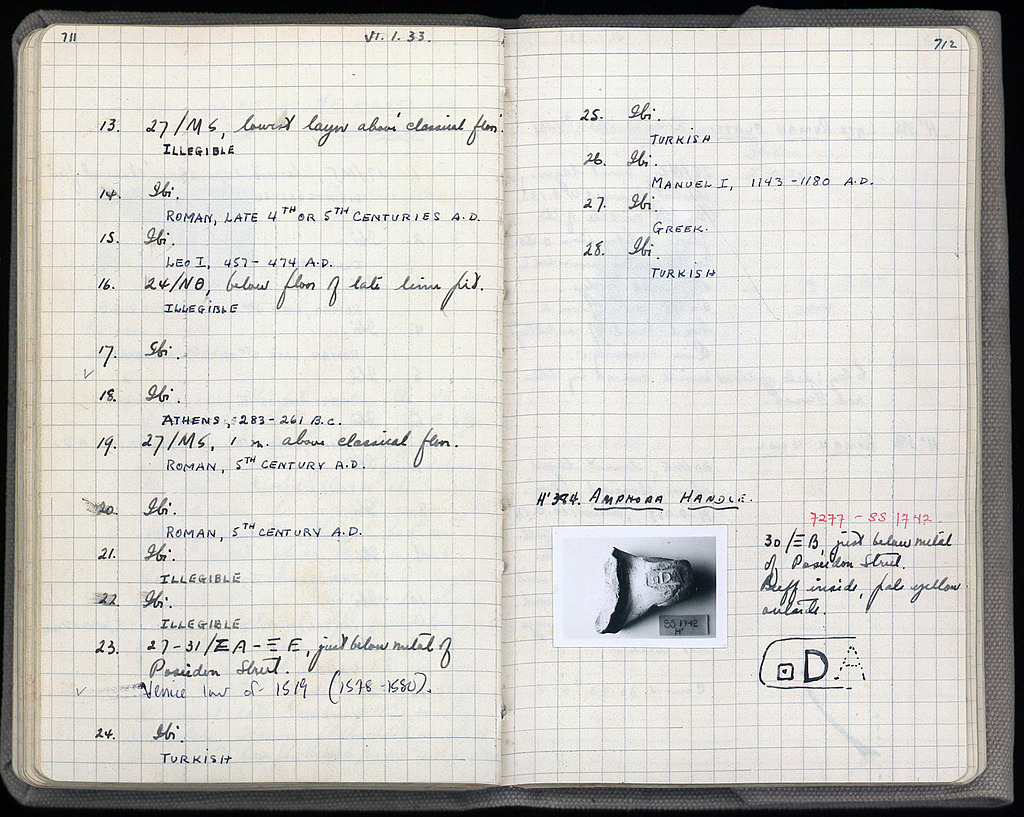 711
VI. 1. 33.
13. 27/ΜΣ, lowest layer above classical floor.
ILLEGIBLE
14. Ibi.
ROMAN, LATE 4TH OR 5TH CENTURIES A.D.
15. Ibi.
LEO I, 457 - 474 A.D.
16. 24/ΝΘ, below floor of late lime pit.
ILLEGIBLE
17. Ibi.
18. Ibi.
ATHENS, 283 - 261 B.C.
19. 27/ΜΣ, 1 m. above classical floor.
ROMAN, 5TH CENTURY A.D.
20. Ibi.
ROMAN, 5TH CENTURY A.D.
21. Ibi.
ILLEGIBLE
22. Ibi.
ILLEGIBLE
23. 27-31/ΞA - ΞE, just below metal of
Poseidon Street.
Venice law of 1519 (1578-1580).
24. Ibi.
TURKISH
712
25. Ibi.
TURKISH
26. Ibi.
MANUEL I, 1143 - 1180 A.D.
27. Ibi.
GREEK.
28. Ibi.
TURKISH
H'384. AMPHORA HANDLE.
7277 - SS 1742.
30/ΞB, just below metal
of Poseidon Street.
Buff inside, pale yellow
outside.
DA
SS 1742
H'
DA